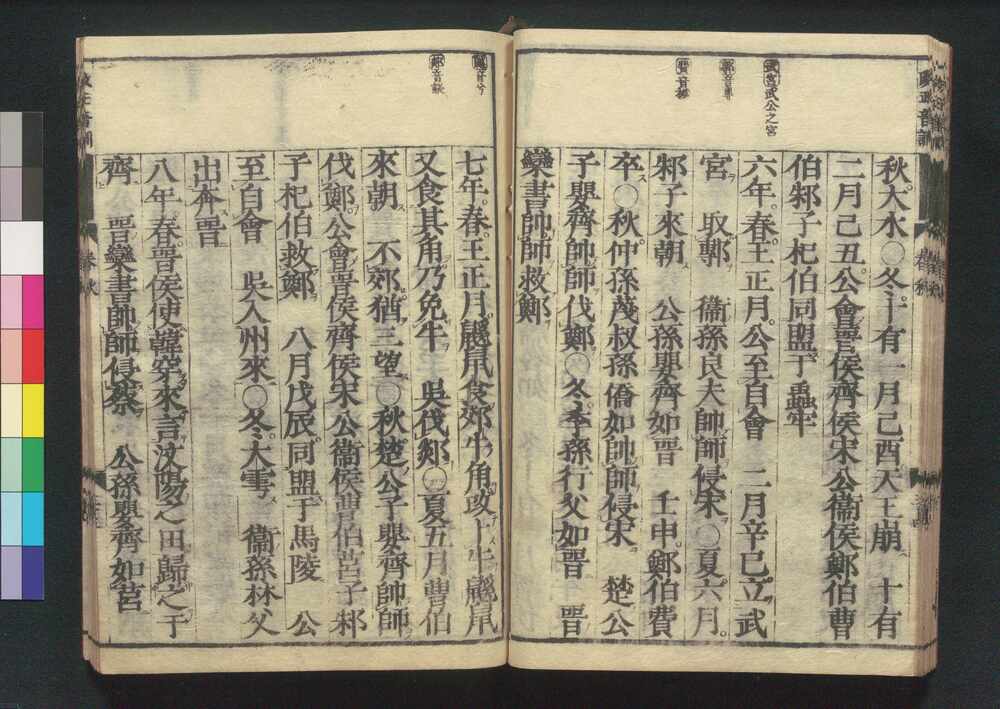 武宮武公之宮
鄟音專
費音祕
秋。大水〇冬。十有一月己酉。天王崩　十有
二月己丑。公會晉侯齊侯宋公衞侯鄭伯曹
伯邾子杞伯同盟于蟲牢
六年。春。王正月。公至自會　二月辛巳。立武
宮　取鄟　衞孫良夫帥師侵宋〇夏六月。
邾子來朝　公孫嬰齊如晉　壬申。鄭伯費
卒。〇秋。仲孫蔑叔孫僑如帥師侵宋　楚公
子嬰齊帥師伐鄭〇冬。季孫行父如晉　晉
欒書帥師救鄭
鼷音兮
郯音談
七年。春。王正月。鼷鼠食郊牛角。改卜牛鼷鼠
又食其角。乃免牛　吳伐郯〇夏五月曹伯
來朝　不郊。猶三望〇秋楚公子嬰齊帥師
伐鄭。公會晉侯齊侯宋公衞侯曹伯莒子邾
子杞伯救鄭　八月戊辰。同盟于馬陵　公
至自會　吳入州來〇冬。大雩　衞孫林父
出奔晉
八年。春。晉侯使韓穿來言汶陽之田歸之于
齊　晉欒書帥師侵蔡　公孫嬰齊如莒